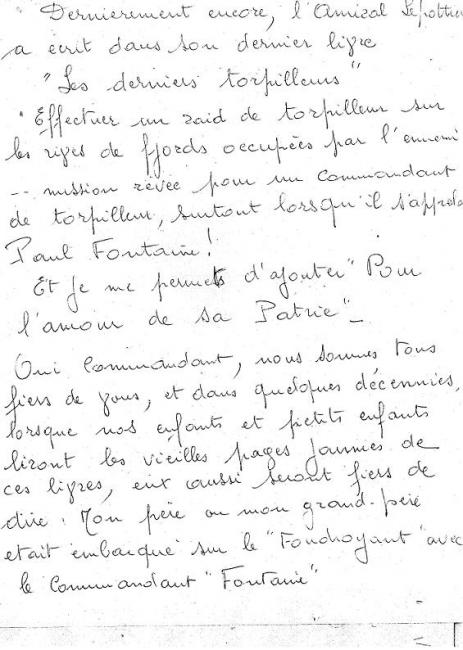 Dernierement encore, l'Amiral Lepotier
a écrit dans son dernier livre
"Les derniers torpilleurs"
"Effectuer un raid de torpilleur sur
les rives de fjords occupées par l'ennemi
-- mission rêvée pour un commandant
de torpilleur, surtout lorsqu'il s'appelle
Paul Fontaine!
Et je me permets d'ajouter "Pour
l'amour de sa Patrie"_
Oui Commandant, nous sommes tous
fiers de vous, et dans quelques décennies,
lorsque nos enfants et petits enfants
liront les vieilles pages jaunies de
ces livres, eux aussi seront fiers de
dire : Mon père ou mon grand-père
etait embarqué sur le "Foudroyant" avec
le Commandant "Fontaine"